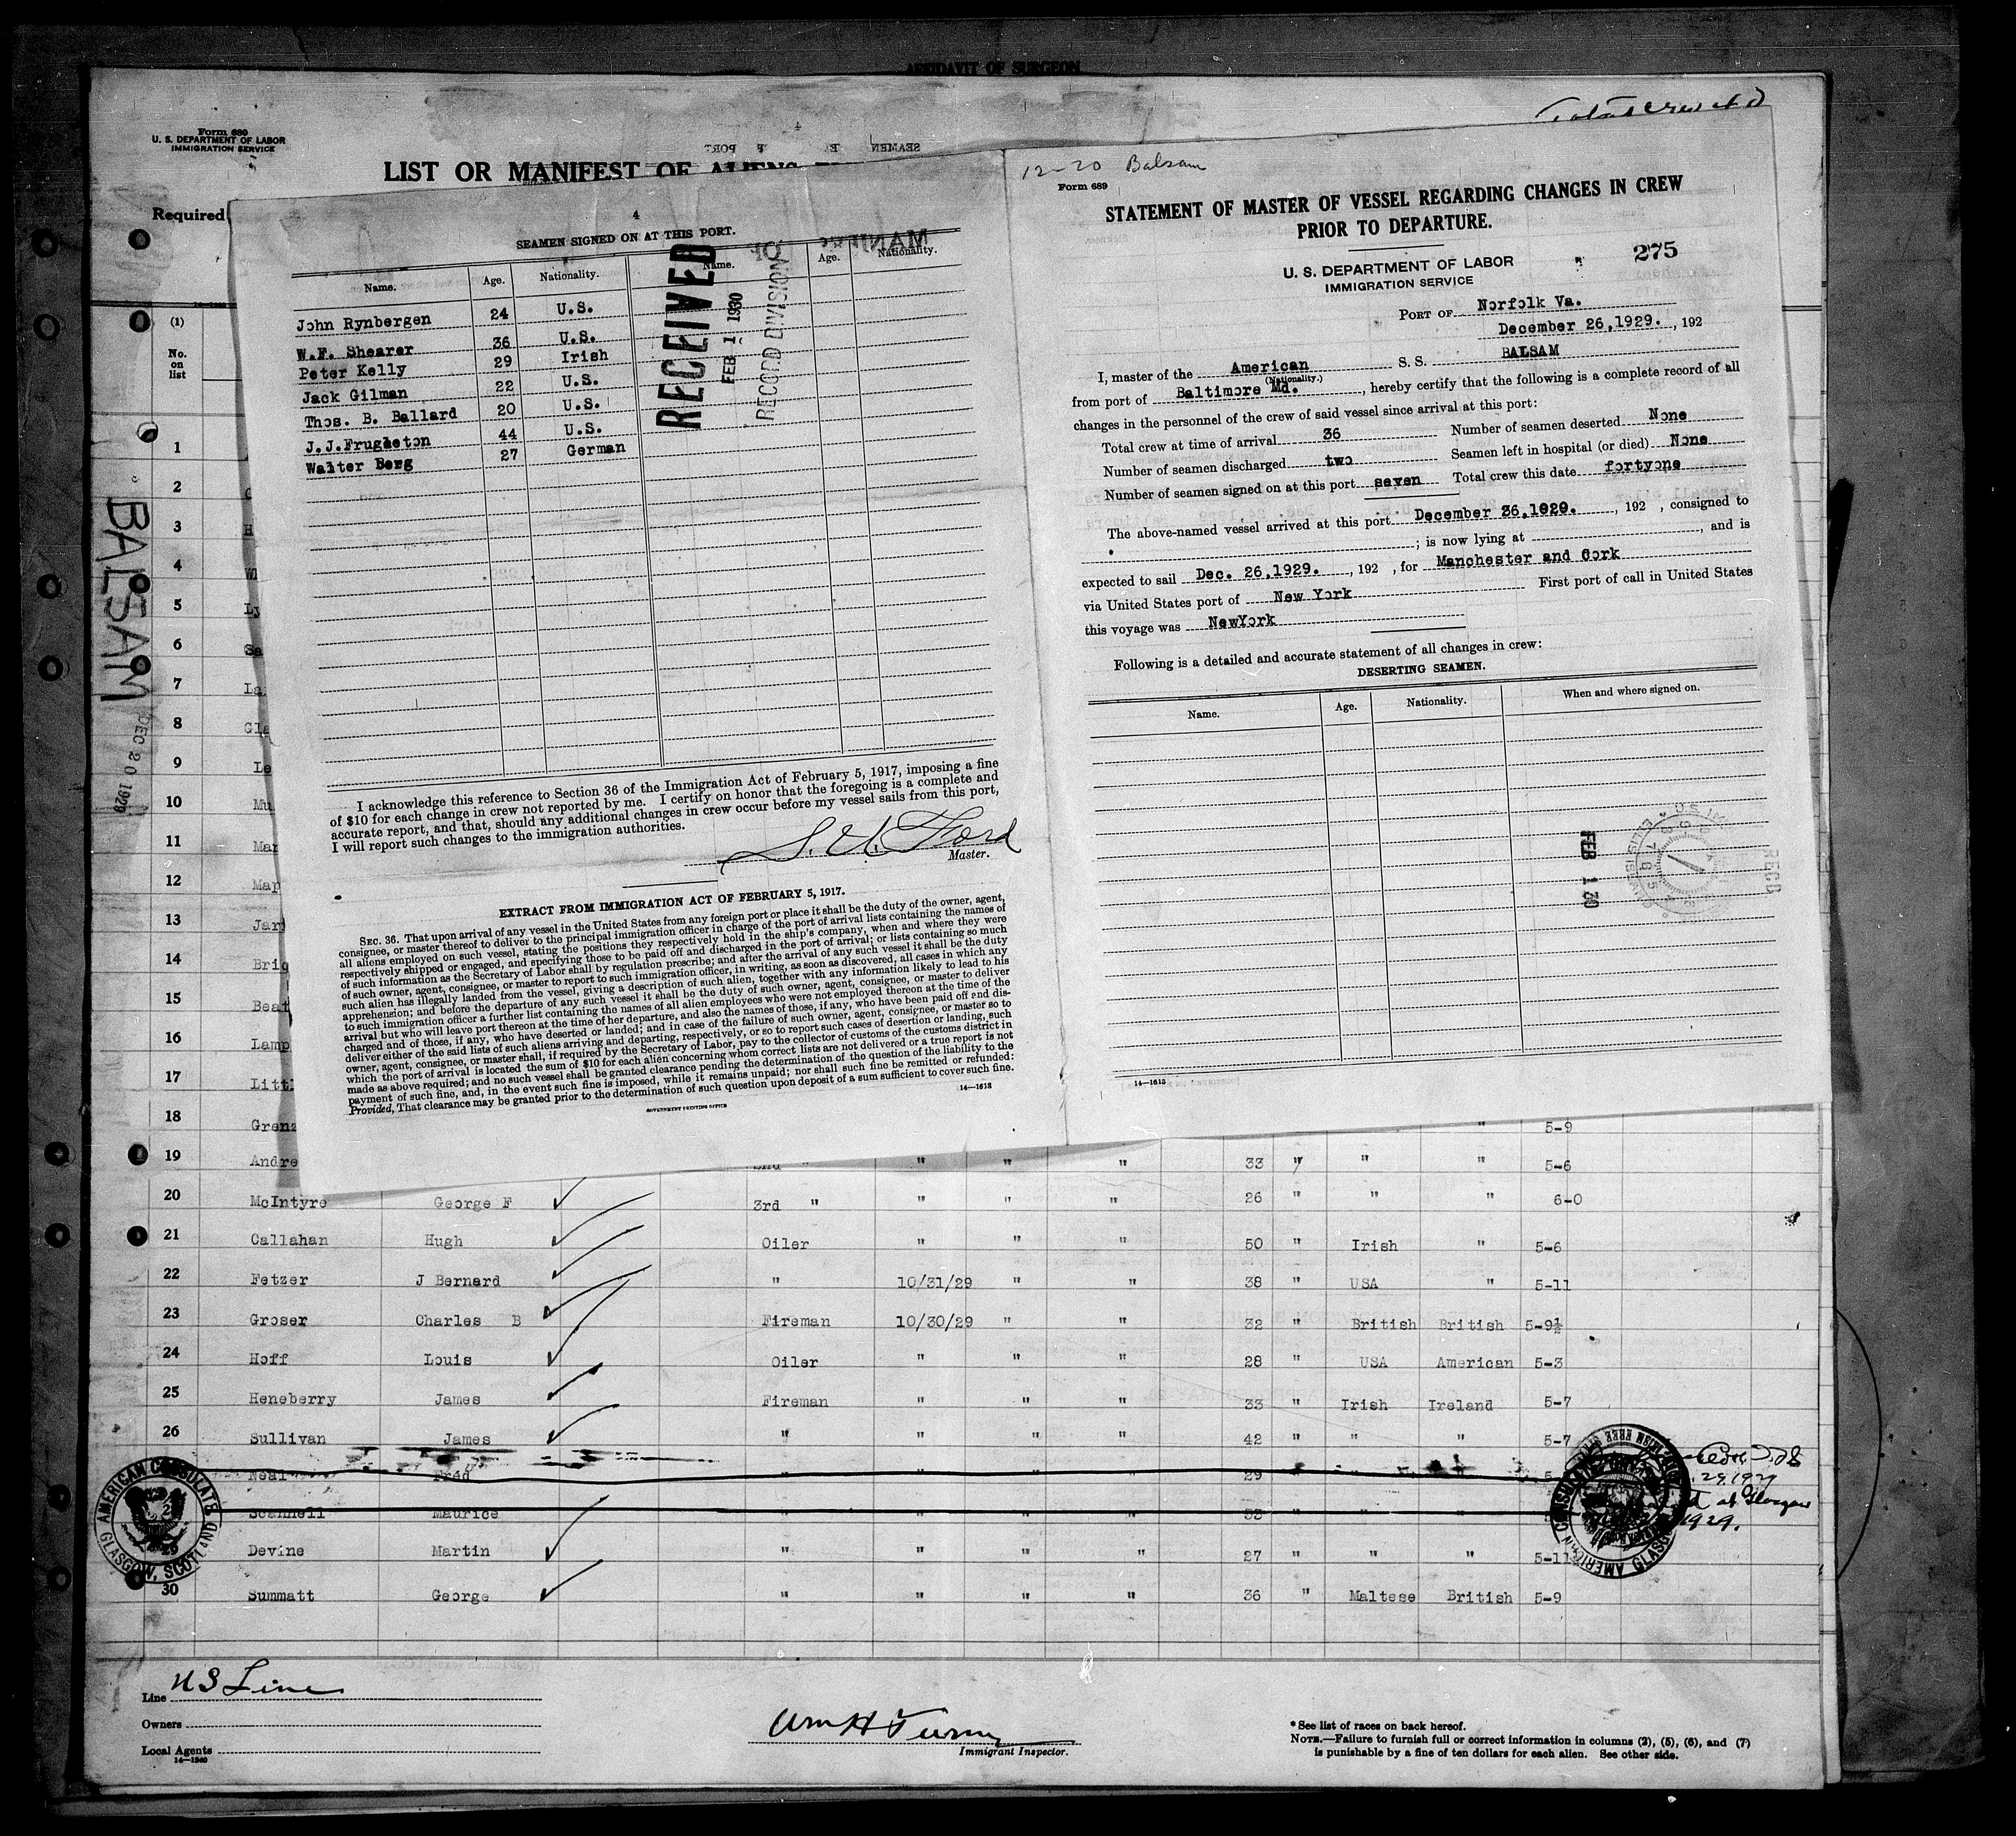 AFFIDAVIT OF SURGEON
Form 689
U. S. DEPARTMENT OF LABOR
IMMIGRATION SERVICE
LIST OR MANIFEST OF ALIENS
Required
(1)
No. on list
BALSAM
DEC 20 1929
4
SEAMEN SIGNED ON AT THIS PORT.
Name. Age. Nationality. Name. Age. Nationality.
John Rynbergen 24 U.S.
W.F. Shearer 36 U.S.
Peter Kelly 29 Irish
Jack Gilman 22 U.S.
Thos. B. Ballard 20 U.S.
J.J.Frugleton 44 U.S.
Walter Berg 27 German
RECEIVED
FEB 1 1930
RECORD DIVISION
I acknowledge this reference to Section 36 of the Immigration Act of February 5, 1917, imposing a fine
of $10 for each change in crew not reported by me. I certify on honor that the foregoing is a complete and
accurate report, and that, should any additional changes in crew occur before my vessel sails from this port,
I will report such changes to the immigration authorities.
Ford
Master.
EXTRACT FROM IMMIGRATION ACT OF FEBRUARY 5, 1917.
SEC. 36. That upon arrival of any vessel in the United States from any foreign port or place it shall be the duty of the owner, agent,
consignee, or master thereof to deliver to the principal immigration officer in charge of the port of arrival lists containing the names of
all aliens employed on such vessel, stating the positions they respectively hold in the ship's company, when and where they were
respectively shipped or engaged, and specifying those to be paid off and discharged in the port of arrival; or lists containing so much
of such information as the Secretary of Labor shall by regulation prescribe; and after the arrival of any such vessel it shall be the duty
of such owner, agent, consignee, or master to report to such immigration officer, in writing, as soon as discovered, all cases in which any
such alien has illegally landed from the vessel, giving a description of such alien, together with any information likely to lead to his
apprehension; and before the departure of any such vessel it shall be the duty of such owner, agent, consignee, or master to deliver
to such immigration officer a further list containing the names of all alien employees who were not employed thereon at the time of the
arrival but who will leave port thereon at the time of her departure, and also the names of those, if any, who have been paid off and dis-
charged and of those, if any, who have deserted or landed; and in case of the failure of such owner, agent, consignee, or master so to
deliver either of the said lists of such aliens arriving and departing, respectively, or so to report such cases of desertion or landing, such
owner, agent, consignee, or master shall, if required by the Secretary of Labor, pay to the collector of customs of the customs district in
which the port of arrival is located the sum of $10 for each alien concerning whom correct lists are not delivered or a true report is not
made as above required; and no such vessel shall be granted clearance pending the determination of the question of the liability to the
payment of such fine, and, in the event such fine is imposed, while it remains unpaid; nor shall such fine be remitted or refunded:
Provided, That clearance may be granted prior to the determination of such question upon deposit of a sum sufficient to cover such fine.
14—1613
GOVERNMENT PRINTING OFFICE
12-20 Balsam
Form 689
STATEMENT OF MASTER OF VESSEL REGARDING CHANGES IN CREW
PRIOR TO DEPARTURE.
275
U. S. DEPARTMENT OF LABOR
IMMIGRATION SERVICE
PORT OF Norfolk Va.
December 26,1929. , 192
I, master of the American S. S. BALSAM
(Nationality.)
from port of Baltimore Md. , hereby certify that the following is a complete record of all
changes in the personnel of the crew of said vessel since arrival at this port:
Total crew at time of arrival 36 Number of seamen deserted None
Number of seamen discharged two Seamen left in hospital (or died) None
Number of seamen signed on at this port seven Total crew this date fortyone
The above-named vessel arrived at this port December 26,1929. , 192 , consigned to
; is now lying at , and is
expected to sail Dec. 26,1929. , 192 , for Manchester and Cork
via United States port of New York First port of call in United States
this voyage was NewYork
Following is a detailed and accurate statement of all changes in crew:
DESERTING SEAMEN.
Name. Age. Nationality. When and where signed on.
FEB 1 30
RECD
14—1613
1
2
3 H
4 Wh
5 Ly
6
7 La
8 Gla
9 Le
10 Mu
11 Mar
12 Map
13 Jar
14 Brig
15 Beat
16 Lamp
17 Littl
18 Grenz " 5-9
19 Andre 2nd " " " " 33 " " " 5-6
20 McIntyre George F 3rd " " " " 26 " " " 6-0
21 Callahan Hugh Oiler " " " 50 " Irish " 5-6
22 Fetzer J Bernard " 10/31/29 " " 38 " USA " 5-11
23 Groser Charles B Fireman 10/30/29 " " 32 " British British 5-9½
24 Hoff Louis Oiler " " " 28 " USA American 5-3
25 Heneberry James Fireman " " " 33 " Irish Ireland 5-7
26 Sullivan James " " " " 42 " " " 5-7
Neal Fred " " " " 29 " " "
Scannell Maurice " " " " 33 " " "
Devine Martin " " " " 27 " " " 5-11
30 Summatt George " " " " 36 " Maltese British 5-9
AMERICAN CONSULATE
GLASGOW, SCOTLAND
at Glasgow
1929.
Line U S Line
Owners
Local Agents
14—1240
Wm H
Immigrant Inspector.
* See list of races on back hereof.
NOTE.—Failure to furnish full or correct information in columns (2), (5), (6), and (7)
is punishable by a fine of ten dollars for each alien. See other side.